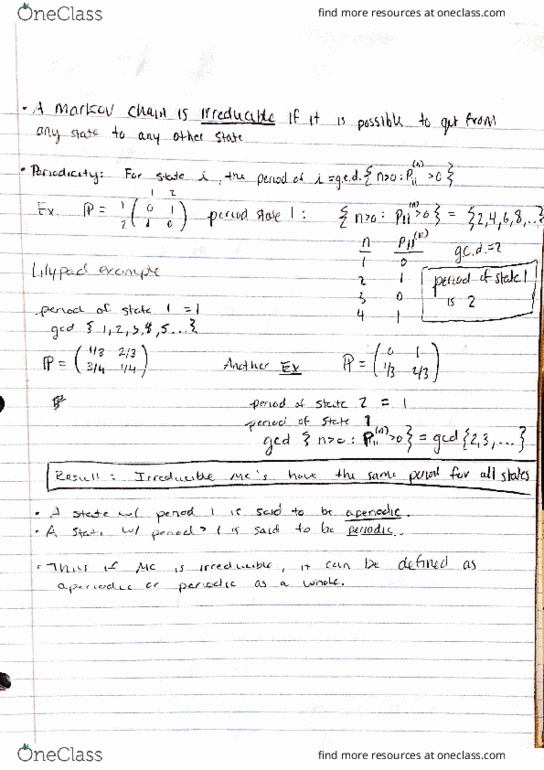 OneClass find more resources at oneclass.com
• A Markov chain is irreducible if it is possible to get from
any state to any other state
• Periodicity: For state i, the period of i = g.c.d. { n>0 : P_ii^(n) > 0 }
1 2
Ex. ℙ = 1 ( 0 1 ) period state 1 : { n>0 : P_11^(n) > 0 } = { 2,4,6,8,... }
2 ( 1 0 )
n P_11^(n) g.c.d.=2
1 0
Lilypad example
2 1 period of state 1
3 0 is 2
4 1
period of state 1 = 1
gcd { 1,2,3,4,5...}
ℙ = ( 1/3 2/3 ) Another Ex ℙ = ( 0 1 )
( 3/4 1/4 ) ( 1/3 2/3 )
period of state 2 = 1
period of state 1
gcd { n>0 : P_11^(n) > 0 } = gcd { 2,3,... }
Result: Irreducible MC's have the same period for all states
• A state w/ period 1 is said to be aperiodic.
• A state w/ period > 1 is said to be periodic.
• Thus if MC is irreducible, it can be defined as
aperiodic or periodic as a whole.
OneClass find more resources at oneclass.com